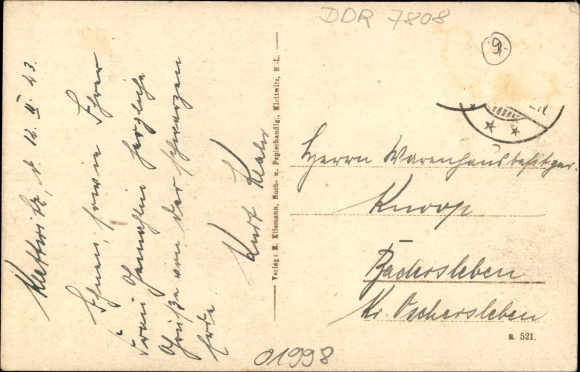 DDR 7808
9
Klettwitz, d. 12. II. 23.
Ihnen, sowie Ihrer
Frau Gemahlin herzliche
Grüße von der schwarzen
Erde
Kurt
Verlag: R. Klisemann, Buch- u. Papierhandlg., Klettwitz, N.-L.
Herrn Warenhausbesitzer
Knoop
Badersleben
Kr. Oschersleben
n. 521.
01998